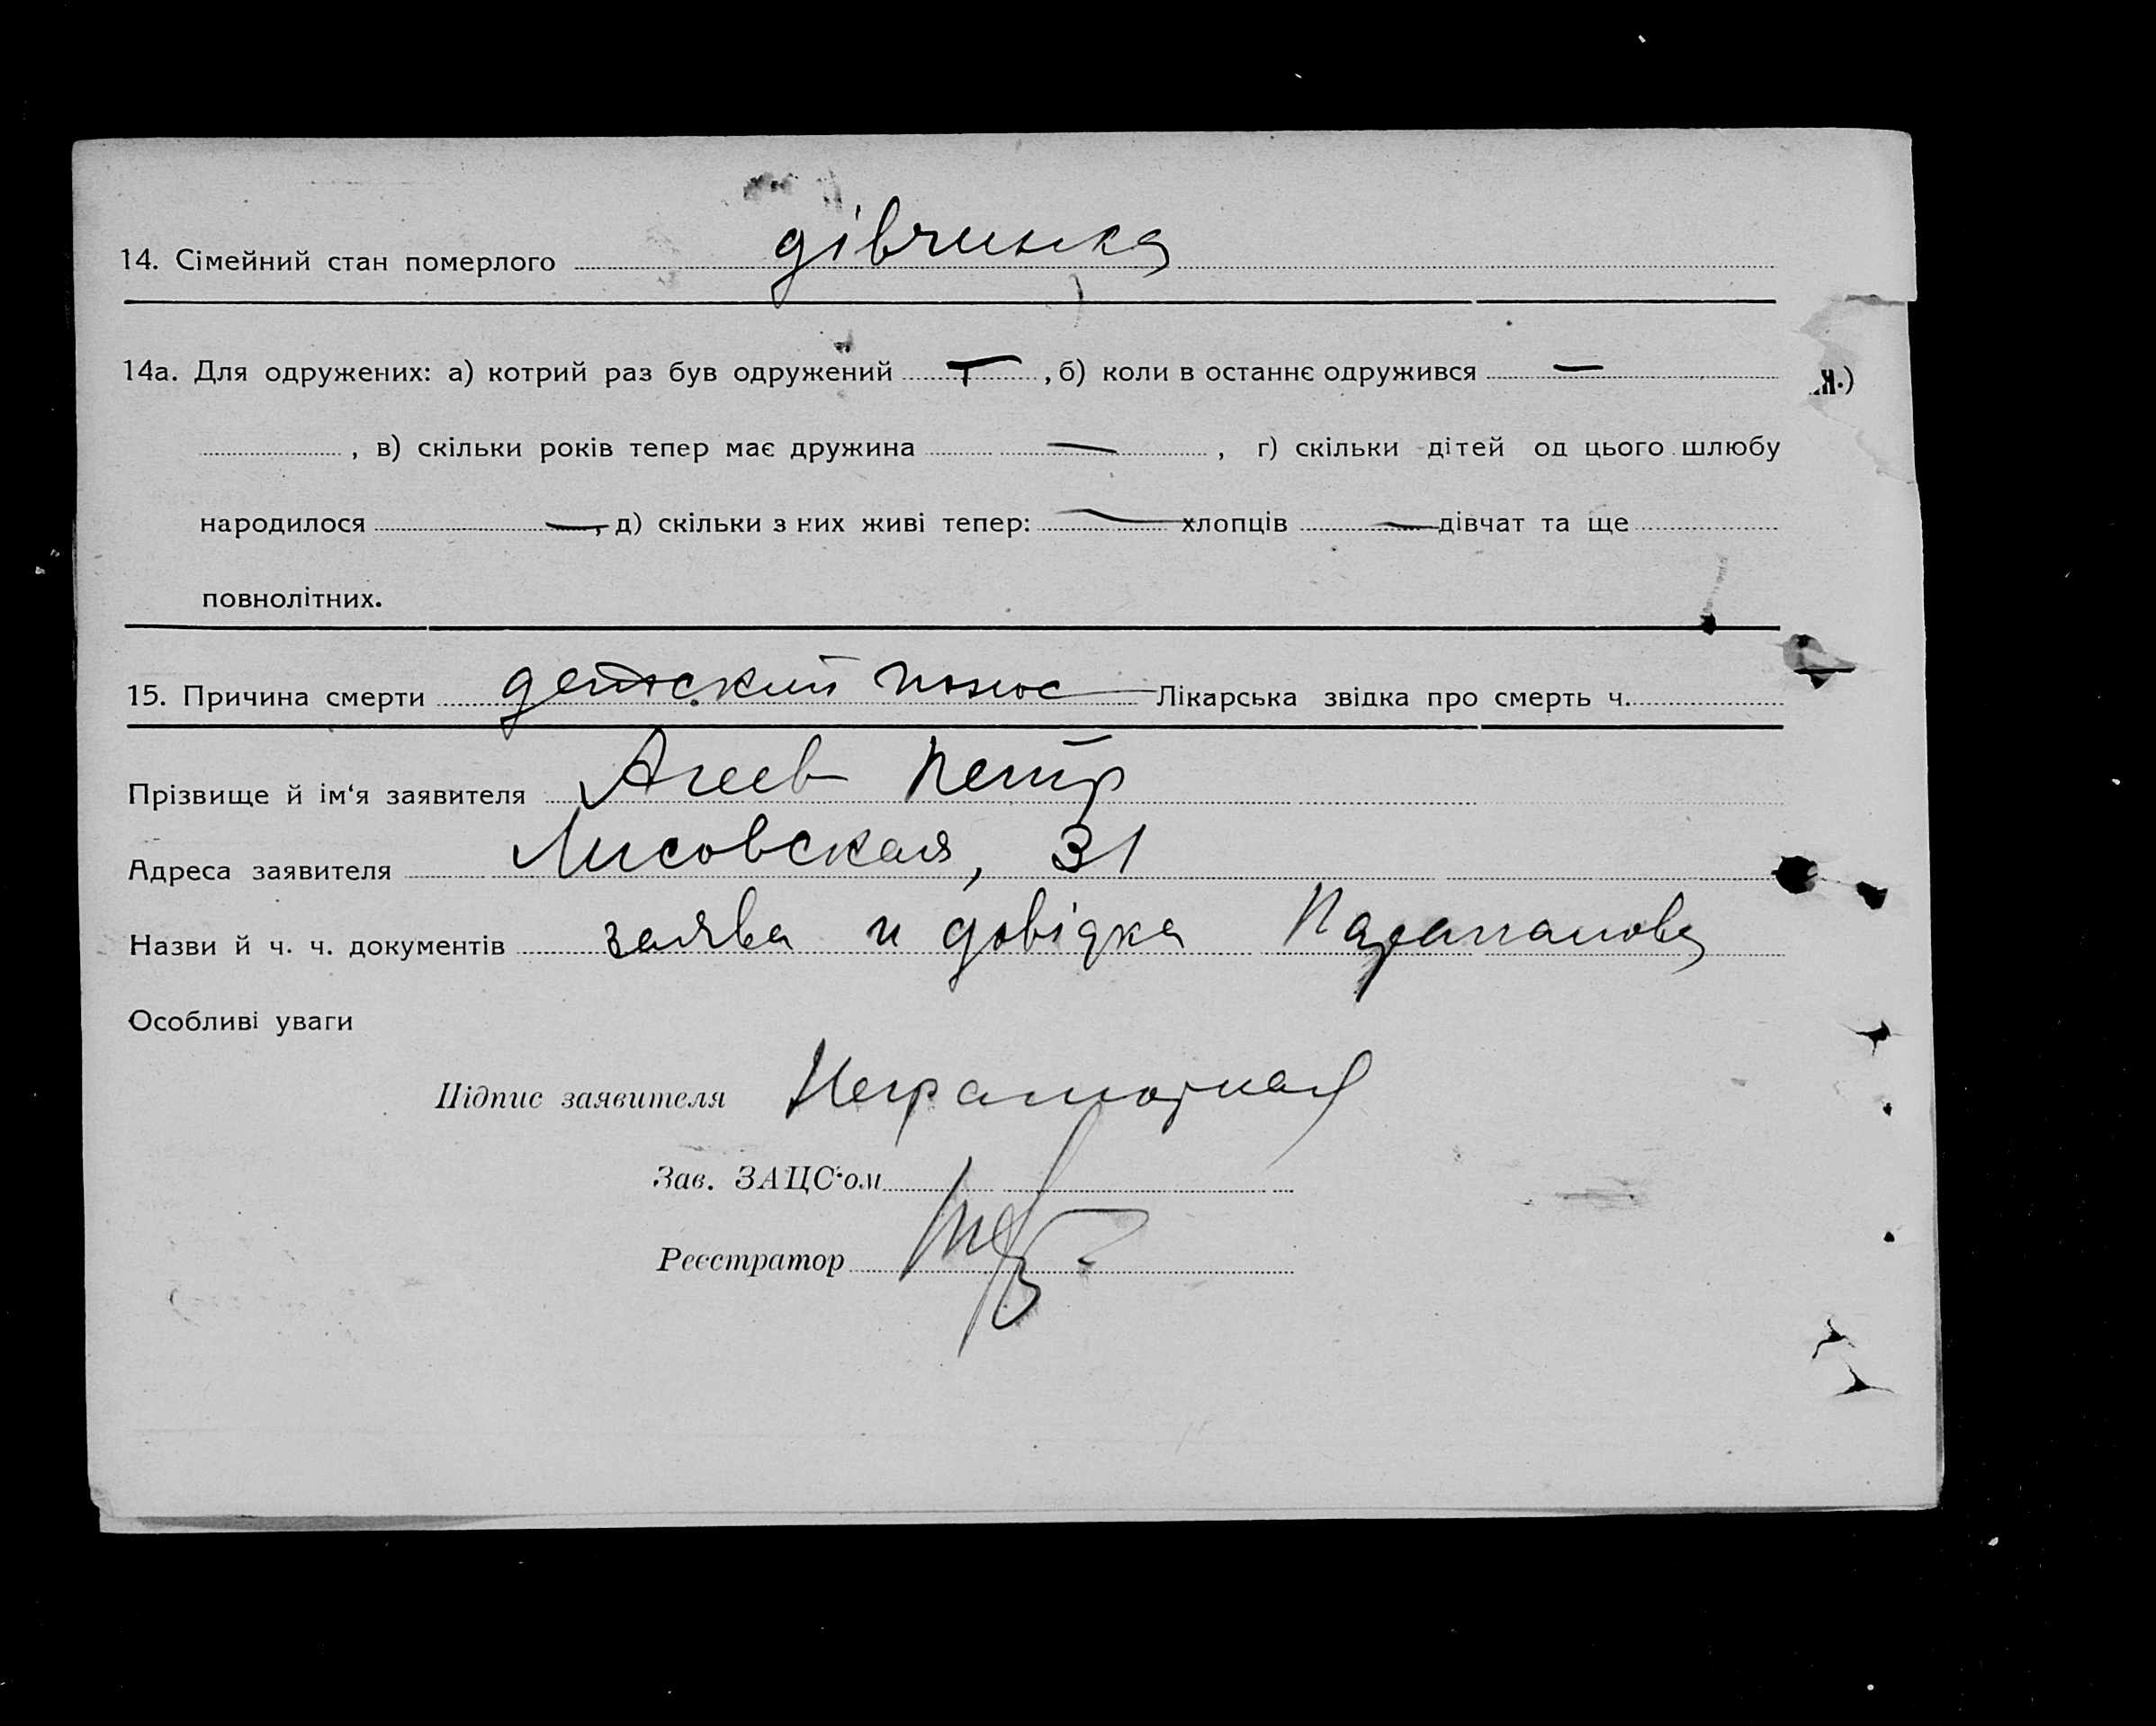 14. Сімейний стан померлого дівчинка
14а. Для одружених: а) котрий раз був одружений —, б) коли в останнє одружився —
, в) скільки років тепер має дружина —, г) скільки дітей од цього шлюбу
народилося —, д) скільки з них живі тепер: — хлопців — дівчат та ще
повнолітних.
15. Причина смерти детский понос Лікарська звідка про смерть ч.
Прізвище й ім‘я заявителя Агеев Петр
Адреса заявителя Лисовская, 31
Назви й ч. ч. документів заява и довідка
Особливі уваги
Підпис заявителя Неграмотная
Зав. ЗАЦС‘ом
Реєстратор